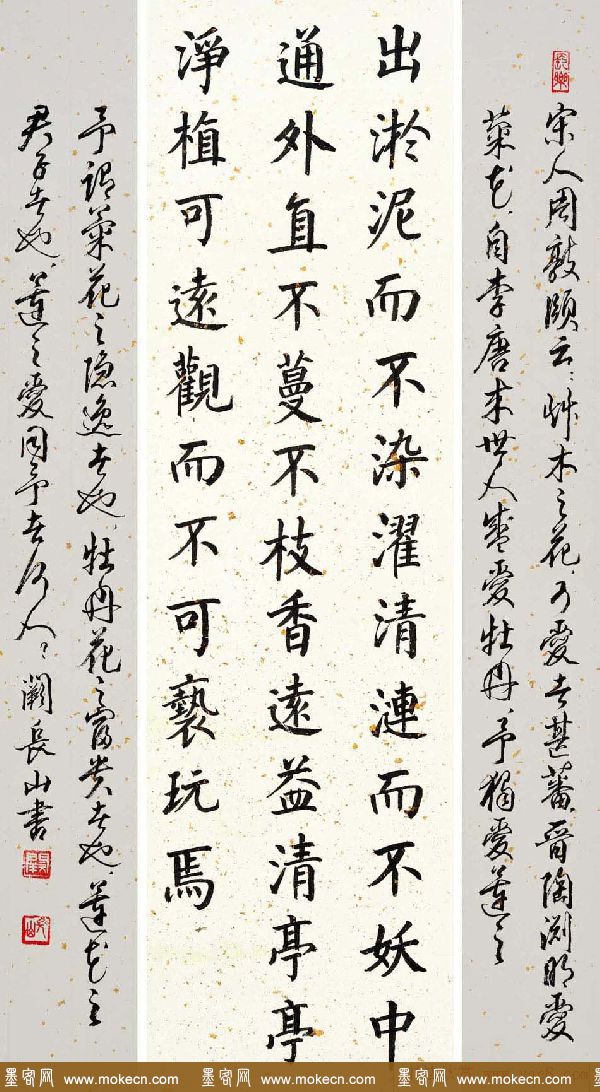 宋人周敦頤云，艸木之花，可愛者甚蕃，晋陶渊明愛
菊花，自李唐来世人盛愛牡丹，予獨愛蓮之
出淤泥而不染濯清漣而不妖中
通外直不蔓不枝香遠益清亭亭
淨植可遠觀而不可褻玩焉
予謂菊花之隐逸者也，牡丹花之富贵者也，蓮花之
君子者也，蓮之愛同予者何人，阚長山書
墨客网 www.mokecn.com 墨客网 www.mokecn.com 墨客网 www.mokecn.com